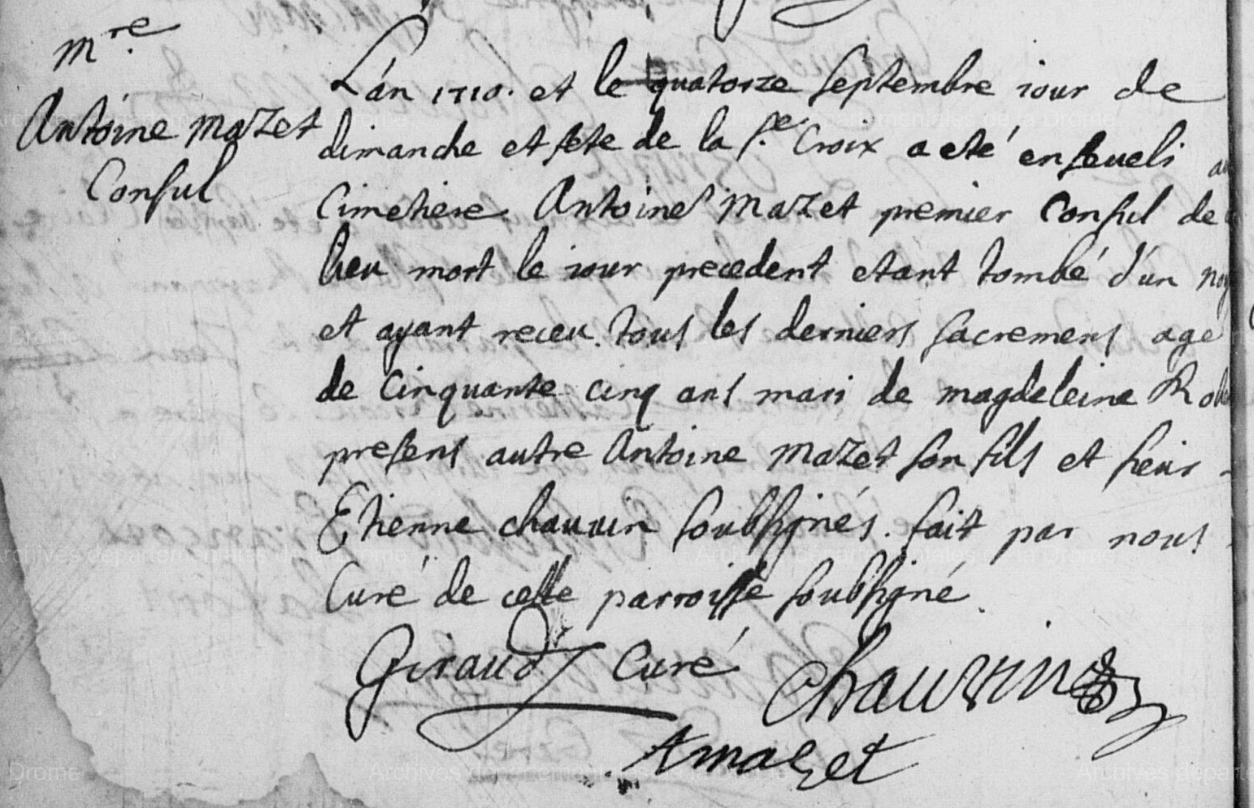 mre
Antoine Mazet
Consul
L'an 1710. et le quatorze Septembre iour de
dimanche et fête de la Ste Croix a eté enseveli au
Cimetiere Antoine Mazet premier Consul de
lieu mort le iour precedent etant tombé d'un
et ayant receu tous les derniers Sacremens agé
de Cinquante cinq ans mari de magdeleine
presens autre Antoine Mazet son fils et sieur
Etienne chauvin soubsignés. fait par nous
Curé de cette parroisse soubsigné.
Giraud Curé Chauvin
Amazet